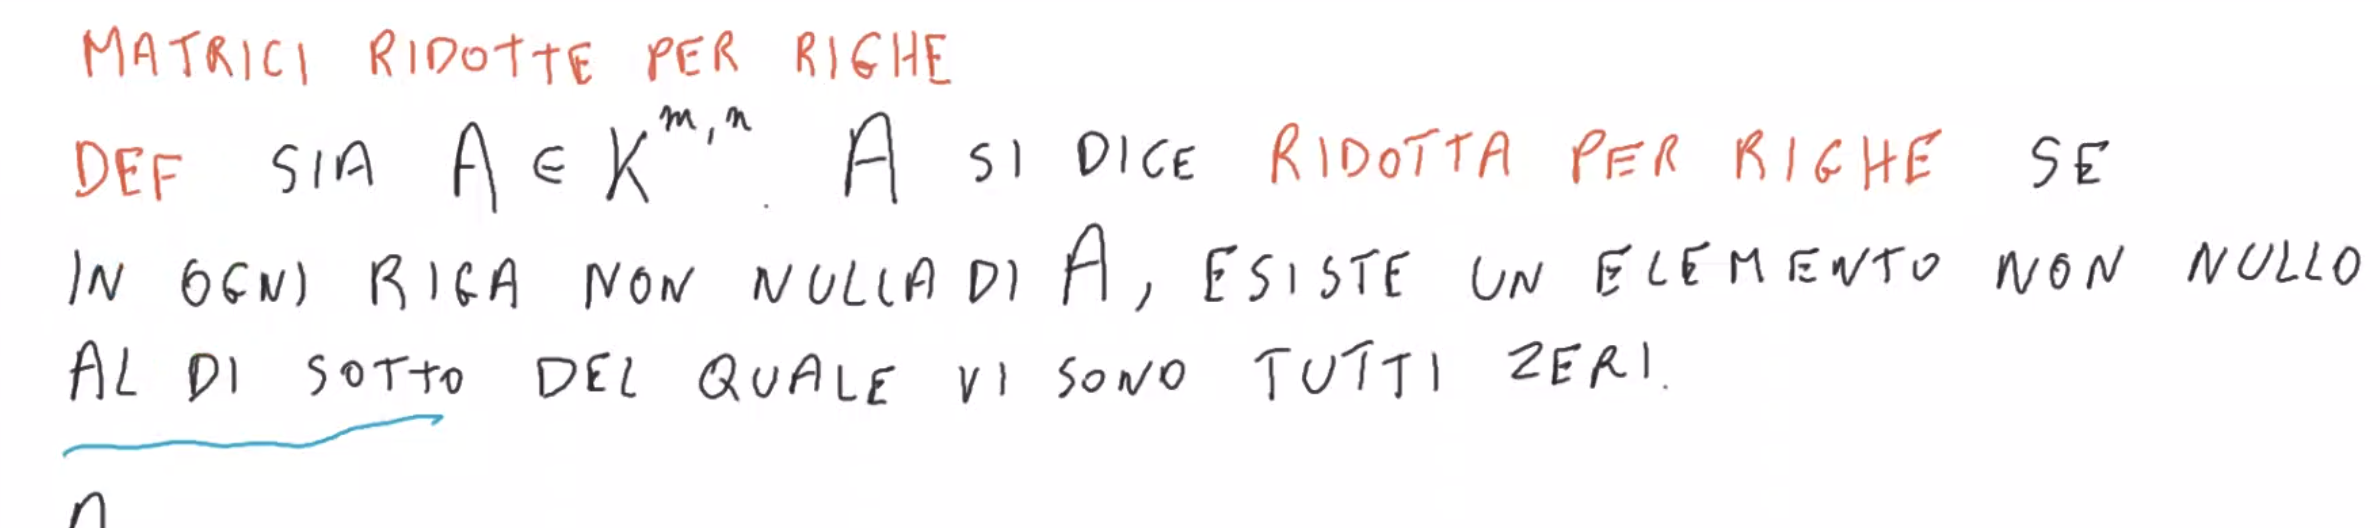 MATRICI RIDOTTE PER RIGHE
DEF SIA A ∈ K^{m,n}. A SI DICE RIDOTTA PER RIGHE SE
IN OGNI RIGA NON NULLA DI A, ESISTE UN ELEMENTO NON NULLO
AL DI SOTTO DEL QUALE VI SONO TUTTI ZERI.